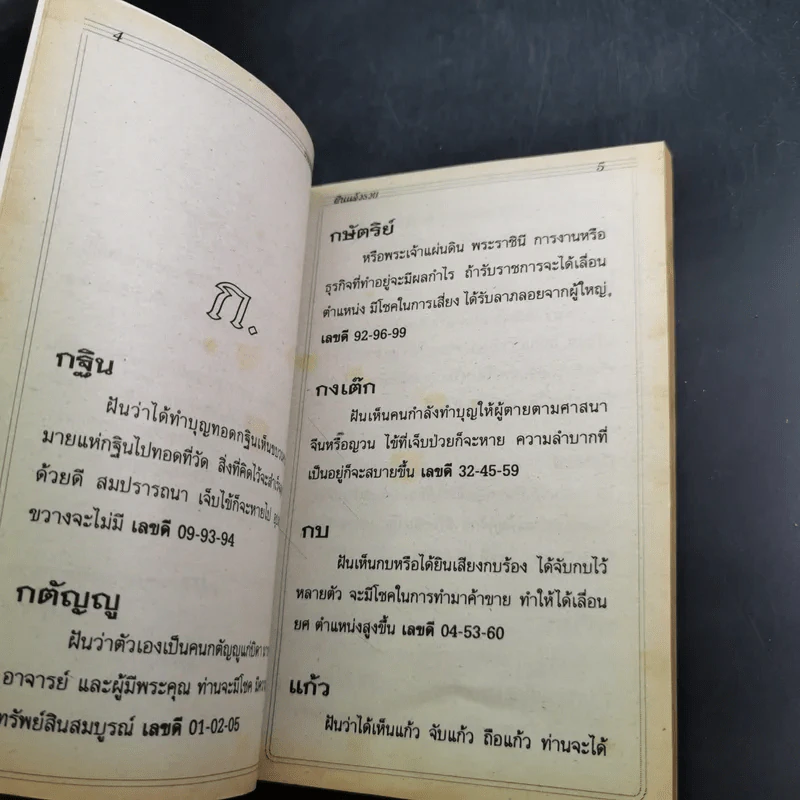 4
ก.
กฐิน
ฝันว่าได้ทำบุญทอดกฐินเห็นขบวน
มายแห่กฐินไปทอดที่วัด สิ่งที่คิดไว้จะสำเร็จ
ด้วยดี สมปรารถนา เจ็บไข้ก็จะหายไป
ขวางจะไม่มี เลขดี 09-93-94
กตัญญู
ฝันว่าตัวเองเป็นคนกตัญญูแก่บิดา
อาจารย์ และผู้มีพระคุณ ท่านจะมีโชค
ทรัพย์สินสมบูรณ์ เลขดี 01-02-05
5
ฝันแล้วรวย
กษัตริย์
หรือพระเจ้าแผ่นดิน พระราชินี การงานหรือ
ธุรกิจที่ทำอยู่จะมีผลกำไร ถ้ารับราชการจะได้เลื่อน
ตำแหน่ง มีโชคในการเสี่ยง ได้รับลาภลอยจากผู้ใหญ่
เลขดี 92-96-99
กงเต๊ก
ฝันเห็นคนกำลังทำบุญให้ผู้ตายตามศาสนา
จีนหรือญวน ไข้ที่เจ็บป่วยก็จะหาย ความลำบากที่
เป็นอยู่ก็จะสบายขึ้น เลขดี 32-45-59
กบ
ฝันเห็นกบหรือได้ยินเสียงกบร้อง ได้จับกบไว้
หลายตัว จะมีโชคในการทำมาค้าขาย ทำให้ได้เลื่อน
ยศ ตำแหน่งสูงขึ้น เลขดี 04-53-60
แก้ว
ฝันว่าได้เห็นแก้ว จับแก้ว ถือแก้ว ท่านจะได้